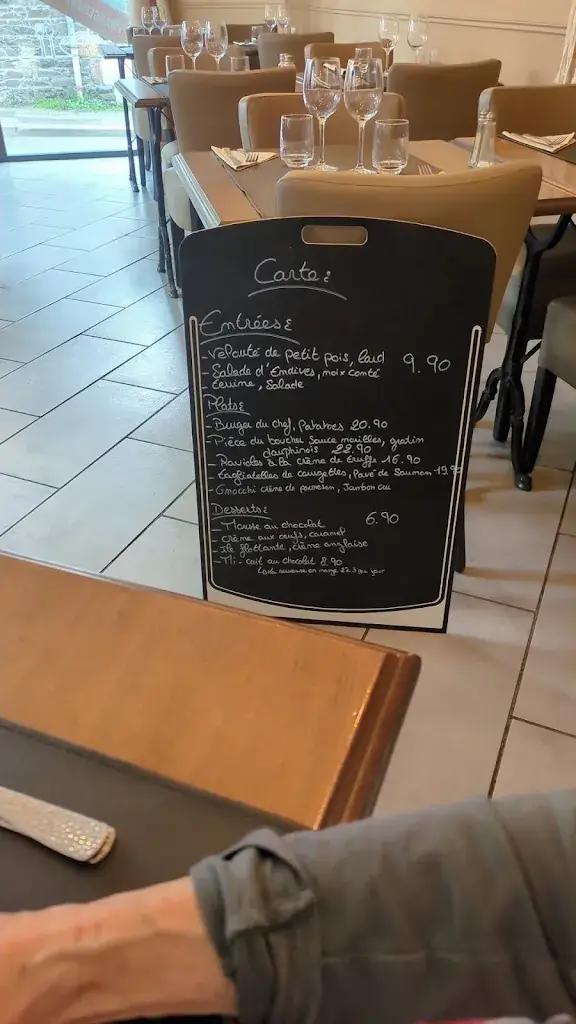 Carte:
Entrées:
- Velouté de petit pois, lard 9.90
- Salade d'Endives, noix comté
- Terrine, Salade
Plats:
- Burger du chef, Patatoes 20.90
- Pièce du boucher sauce morilles, gratin
dauphinois 22.90
- Ravioles à la crème de truffe 16.90
- Tagliatelles de courgettes, Pavé de Saumon 19.90
- Gnocchi crème de parmesan, Jambon cru
Desserts:
- Mousse au chocolat 6.90
- Crème aux oeufs, caramel
- Ile flottante, crème anglaise
- Mi-cuit au chocolat 8.90